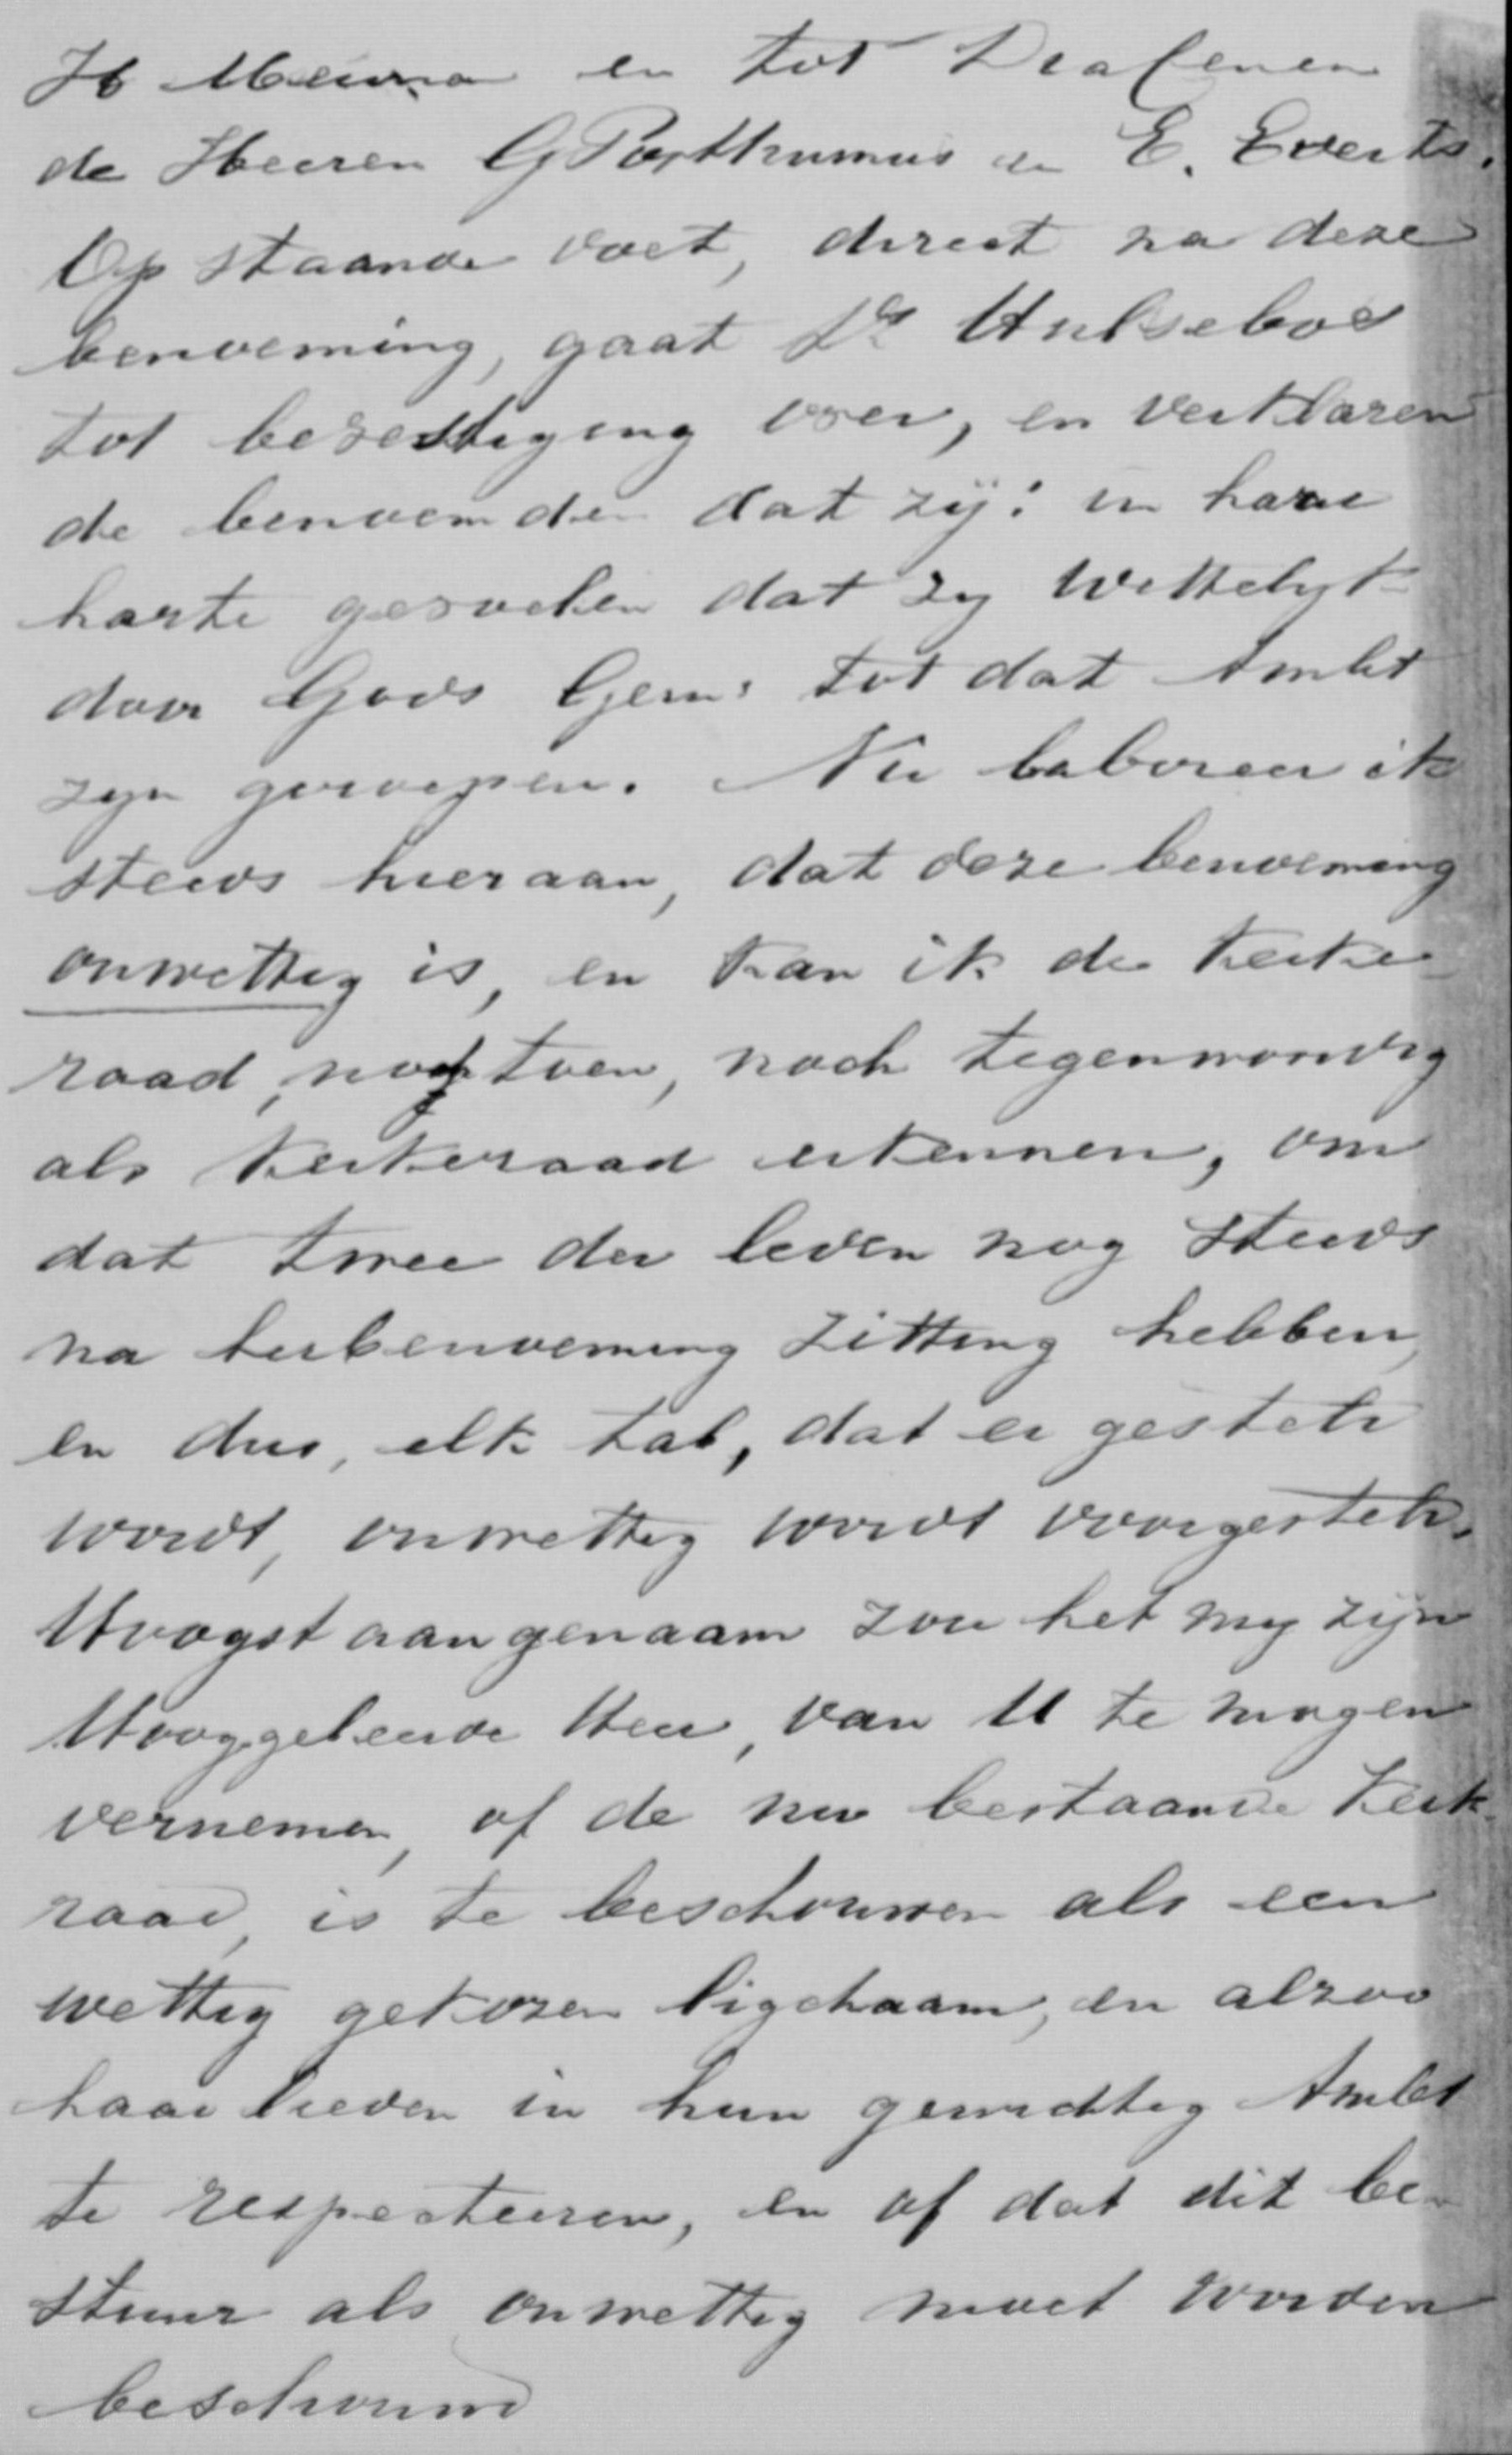 H Meima en tot Diakenen
de Heeren G Posthumus en E. Everts.
Op staande voet, direct na deze
benoeming, gaat Ds Hulsebos
tot bevestiging over, en verklaren
de benoemden dat zij: in hare
harte gevoelen dat zij Wettelijk
door Gods Gem: tot dat Ambt
zijn geroepen. Nu laboreer ik
steeds hieraan, dat deze benoeming
onwettig is, en kan ik de kerke
raad, noch toen, noch tegenwoordig
als kerkeraad erkennen, om
dat twee der leden nog steeds
na herbenoeming zitting hebben,
en dus, elk tal, dat er gesteld
wordt, onwettig wordt voorgesteld.
Hoogst aangenaam zou het mij zijn
Hooggeleerde Heer, van U te mogen
vernemen, of de nu bestaande Kerk-
raad, is te beschouwen als een
wettig gekozen ligchaam, en alzoo
haar lieden in hun gewichtig Ambt
te respecteeren, en of dat dit be-
stuur als onwettig moet worden
beschouwd